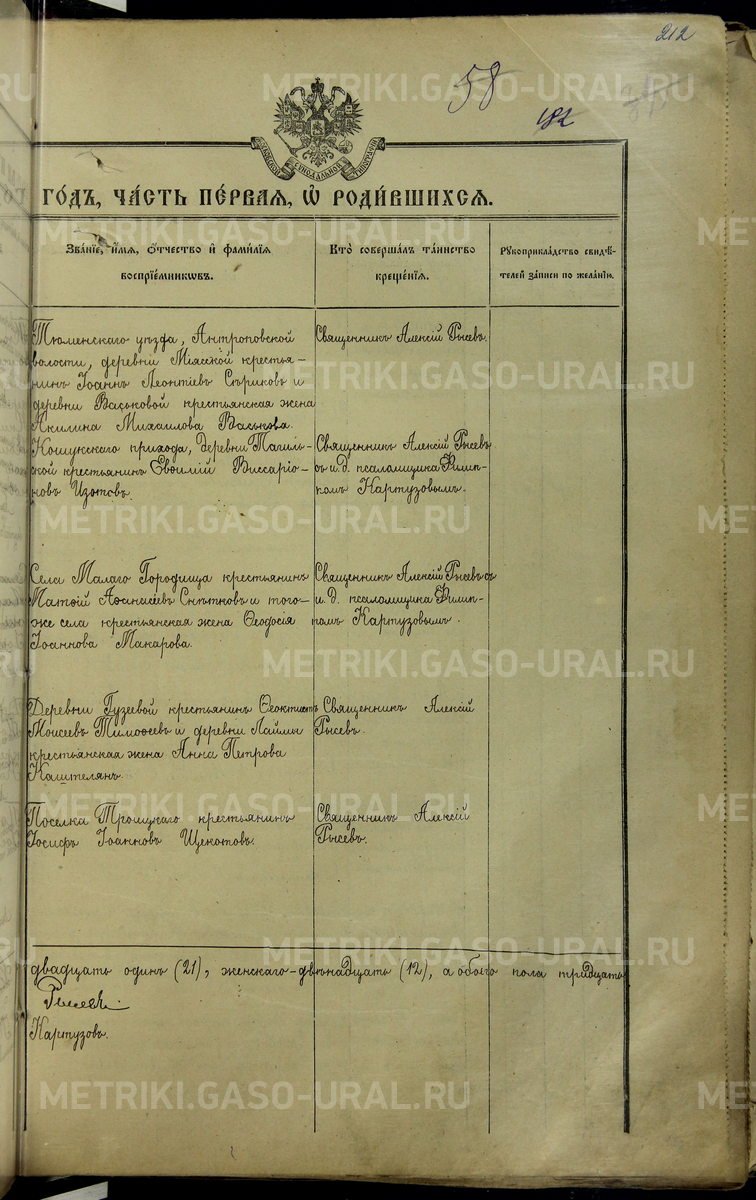 212
58
182
ГО́ДЪ, ЧА́СТЬ ПЕ́РВАЯ, Ѡ҆ РОДИ́ВШИХСЯ.
Зва́нїе, и҆́мя, ѻ҆́тчество и҆ фами́лїя
воспрїе́мникѡвъ.
Кто̀ соверша́лъ та́инство
креще́нїя.
Рꙋкоприкла́дство свидѣ́-
телей за́писи по жела́нїю.
Тюменскаго уѣзда, Антроповской
волости, деревни Міясской крестья-
нинъ Іоаннъ Леонтіевъ Сѣриковъ и
деревни Васьковой крестьянская жена
Акилина Михаилова Васькова.
Священникъ Алексій Рысевъ.
Кошукскаго прихода, деревни Тагиль-
ской крестьянинъ Евѳимій Виссаріо-
новъ Изотовъ.
Священникъ Алексій Рысевъ
съ и. д. псаломщика Филип-
помъ Картузовымъ.
Села Малаго Городища крестьянинъ
Матѳій Аѳанасіевъ и того-
же села крестьянская жена Ѳеодосія
Іоаннова Макарова.
Священникъ Алексій Рысевъ съ
и. д. псаломщика Филип-
помъ Картузовымъ.
Деревни Гузеевой крестьянинъ Ѳеоктистъ
Моисеевъ Тимоѳеевъ и деревни Лаймы
крестьянская жена Анна Петрова
Каштелянъ.
Священникъ Алексій
Рысевъ.
Поселка Троицкаго крестьянинъ
Іосифъ Іоанновъ Щекотовъ.
Священникъ Алексій
Рысевъ.
двадцать одинъ (21), женскаго - двѣнадцать (12), а обоего пола тридцать
Рысевъ
Картузовъ.
METRIKI.GASO-URAL.RU